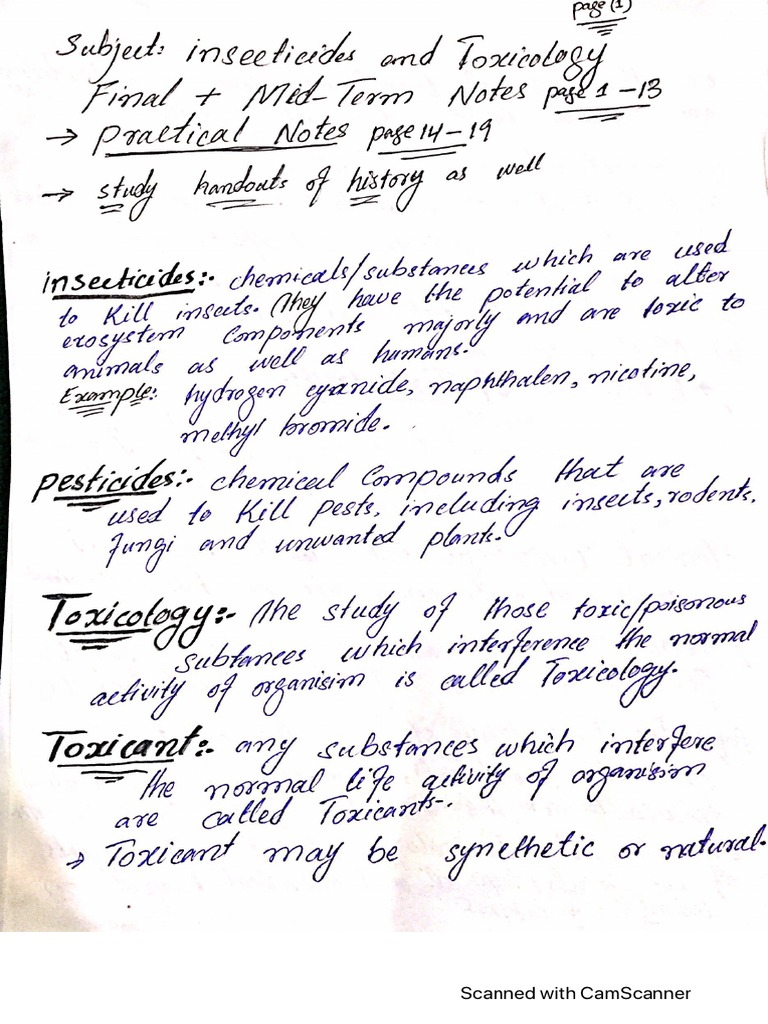 page (1)
Subject: insecticides and Toxicology
Final + Mid-Term Notes page 1 – 13
→ Practical Notes page 14 – 19
→ study handouts of history as well
insecticides:- chemicals/substances which are used
to Kill insects. They have the potential to alter
ecosystem components majorly and are toxic to
animals as well as humans.
Example: hydrogen cyanide, naphthalen, nicotine,
methyl bromide.
pesticides:- chemical compounds that are
used to Kill pests, including insects, rodents,
fungi and unwanted plants.
Toxicology:- The study of those toxic/poisonous
substances which interference the normal
activity of organisim is called Toxicology.
Toxicant:- any substances which interfere
the normal life activity of organisim
are called Toxicants.
→ Toxicant may be synethetic or natural.
Scanned with CamScanner